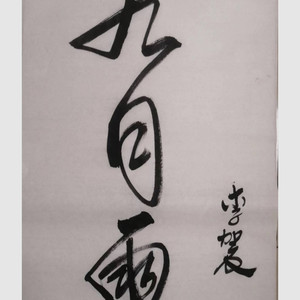 九月雨
李